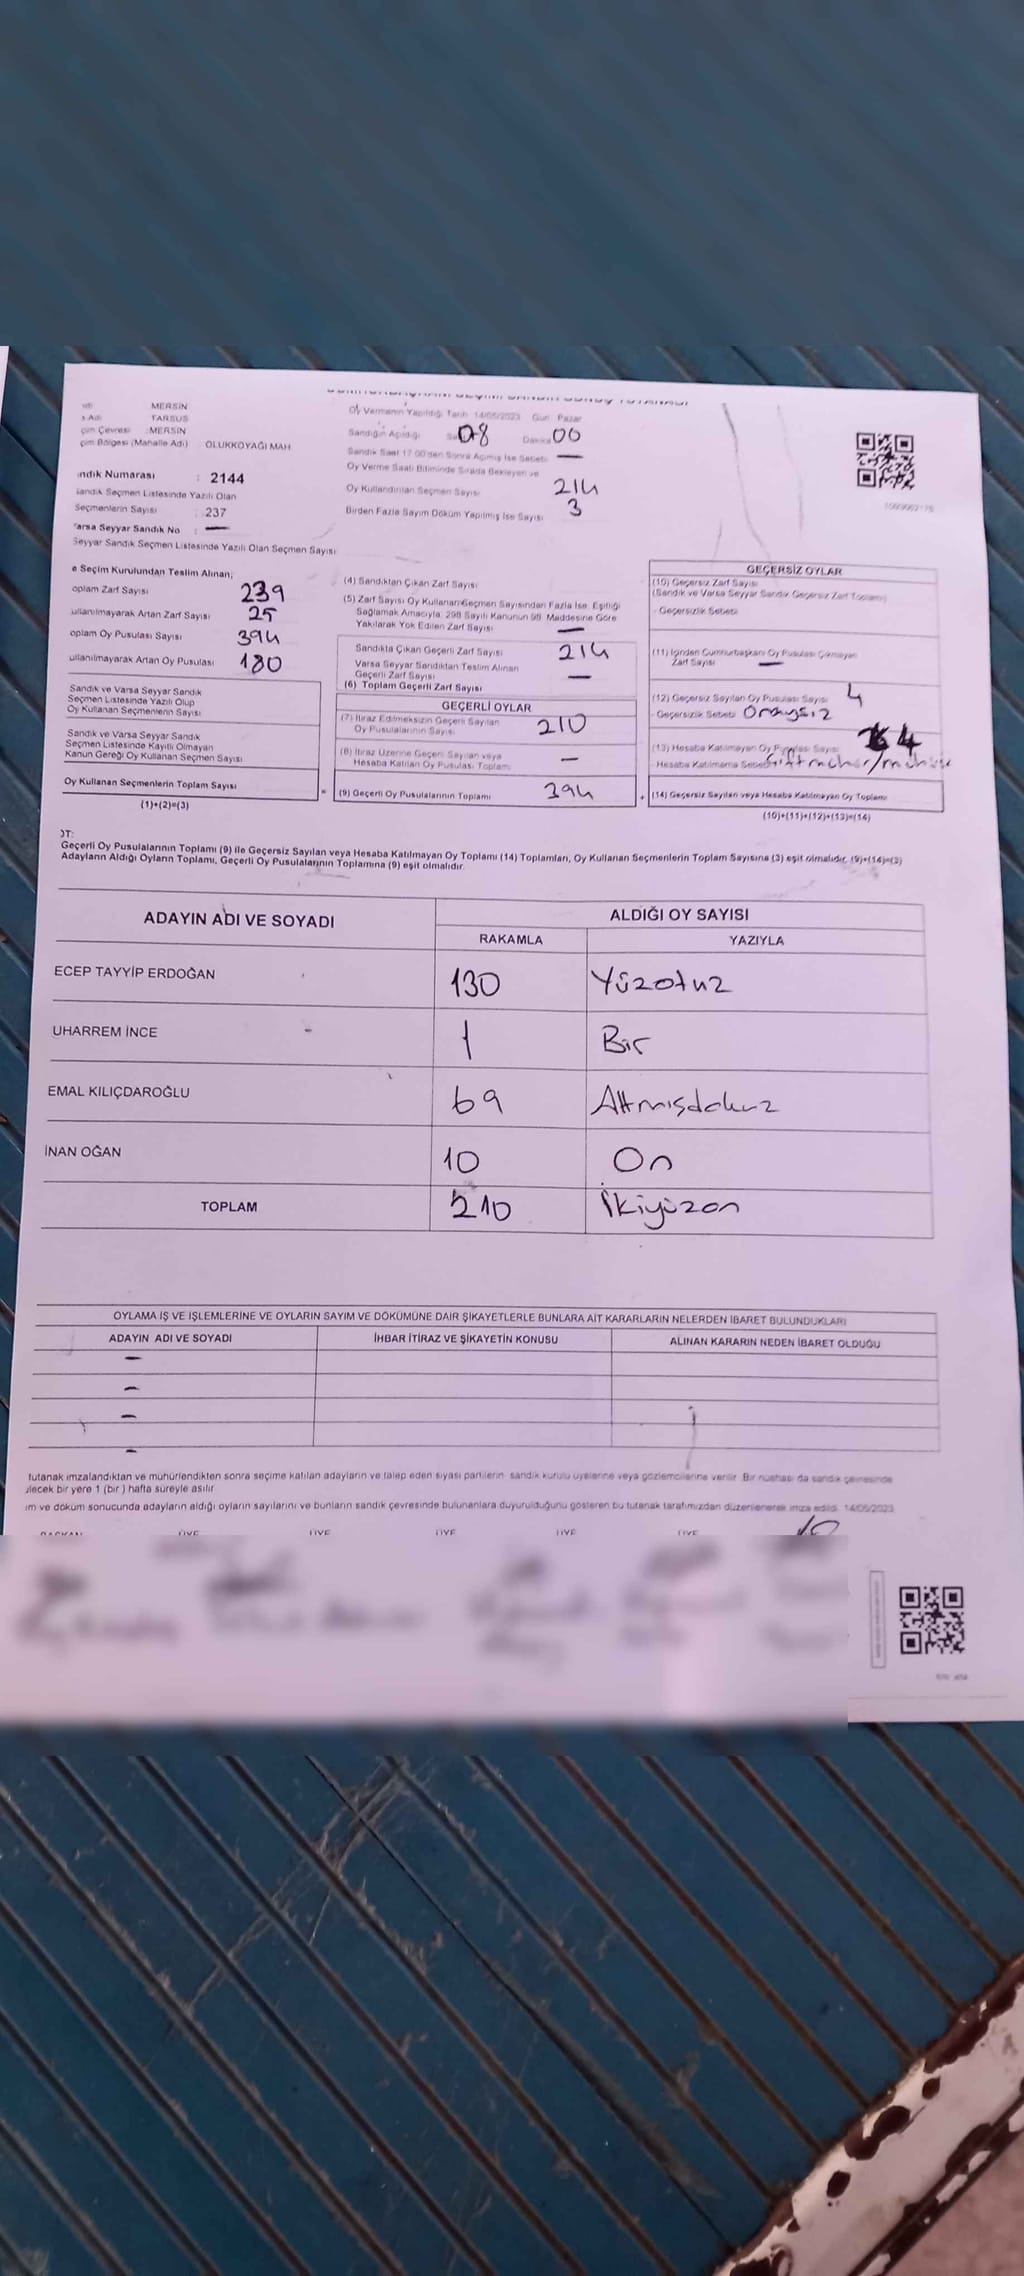 MERSİN
TARSUS
MERSİN
OLUKKOYAĞI MAH
Oy Vermenin Yapıldığı Tarih 14/05/2023 Gün Pazar
Sandığın Açıldığı 08 00
Sandık Saat 17:00'den Sonra Açılmış İse Sebebi —
Oy Verme Saati Bitiminde Sırada Bekleyen ve
Oy Kullandırılan Seçmen Sayısı 214
Birden Fazla Sayım Döküm Yapılmış İse Sayısı 3
ndık Numarası : 2144
Sandık Seçmen Listesinde Yazılı Olan
Seçmenlerin Sayısı : 237
Varsa Seyyar Sandık No : —
Seyyar Sandık Seçmen Listesinde Yazılı Olan Seçmen Sayısı
e Seçim Kurulundan Teslim Alınan;
oplam Zarf Sayısı 239
ullanılmayarak Artan Zarf Sayısı 25
oplam Oy Pusulası Sayısı 394
ullanılmayarak Artan Oy Pusulası 180
Sandık ve Varsa Seyyar Sandık
Seçmen Listesinde Yazılı Olup
Oy Kullanan Seçmenlerin Sayısı
Sandık ve Varsa Seyyar Sandık
Seçmen Listesinde Kayıtlı Olmayan
Kanun Gereği Oy Kullanan Seçmen Sayısı
Oy Kullanan Seçmenlerin Toplam Sayısı
(1)+(2)=(3)
(4) Sandıktan Çıkan Zarf Sayısı
(5) Zarf Sayısı Oy Kullanan Seçmen Sayısından Fazla İse, Eşitliği
Sağlamak Amacıyla, 298 Sayılı Kanunun 98. Maddesine Göre
Yakılarak Yok Edilen Zarf Sayısı —
Sandıkta Çıkan Geçerli Zarf Sayısı 214
Varsa Seyyar Sandıktan Teslim Alınan
Geçerli Zarf Sayısı —
(6) Toplam Geçerli Zarf Sayısı
GEÇERLİ OYLAR
(7) İtiraz Edilmeksizin Geçerli Sayılan
Oy Pusulalarının Sayısı 210
(8) İtiraz Üzerine Geçerli Sayılan veya
Hesaba Katılan Oy Pusulası Toplamı —
= (9) Geçerli Oy Pusulalarının Toplamı 394
GEÇERSİZ OYLAR
(10) Geçersiz Zarf Sayısı
(Sandık ve Varsa Seyyar Sandık Geçersiz Zarf Toplamı)
- Geçersizlik Sebebi
(11) İçinden Cumhurbaşkanı Oy Pusulası Çıkmayan
Zarf Sayısı —
(12) Geçersiz Sayılan Oy Pusulası Sayısı 4
- Geçersizlik Sebebi Onaysız
(13) Hesaba Katılmayan Oy Pusulası Sayısı 4
- Hesaba Katılmama Sebebi
+ (14) Geçersiz Sayılan veya Hesaba Katılmayan Oy Toplamı
(10)+(11)+(12)+(13)=(14)
OT:
Geçerli Oy Pusulalarının Toplamı (9) ile Geçersiz Sayılan veya Hesaba Katılmayan Oy Toplamı (14) Toplamları, Oy Kullanan Seçmenlerin Toplam Sayısına (3) eşit olmalıdır. (9)+(14)=(3)
Adayların Aldığı Oyların Toplamı, Geçerli Oy Pusulalarının Toplamına (9) eşit olmalıdır.
ADAYIN ADI VE SOYADI ALDIĞI OY SAYISI
RAKAMLA YAZIYLA
ECEP TAYYİP ERDOĞAN 130 Yüzotuz
UHARREM İNCE 1 Bir
EMAL KILIÇDAROĞLU 69 Altmışdokuz
İNAN OĞAN 10 On
TOPLAM 210 İkiyüzon
OYLAMA İŞ VE İŞLEMLERİNE VE OYLARIN SAYIM VE DÖKÜMÜNE DAİR ŞİKAYETLERLE BUNLARA AİT KARARLARIN NELERDEN İBARET BULUNDUKLARI
ADAYIN ADI VE SOYADI İHBAR İTİRAZ VE ŞİKAYETİN KONUSU ALINAN KARARIN NEDEN İBARET OLDUĞU
—
—
—
—
tutanak imzalandıktan ve mühürlendikten sonra seçime katılan adayların ve talep eden siyasi partilerin sandık kurulu üyelerine veya gözlemcilerine verilir. Bir nüshası da sandık çevresinde
ilecek bir yere 1 (bir ) hafta süreyle asılır
ım ve döküm sonucunda adayların aldığı oyların sayılarını ve bunların sandık çevresinde bulunanlara duyurulduğunu gösteren bu tutanak tarafımızdan düzenlenerek imza edildi. 14/05/2023
BAŞKAN ÜYE ÜYE ÜYE ÜYE ÜYE